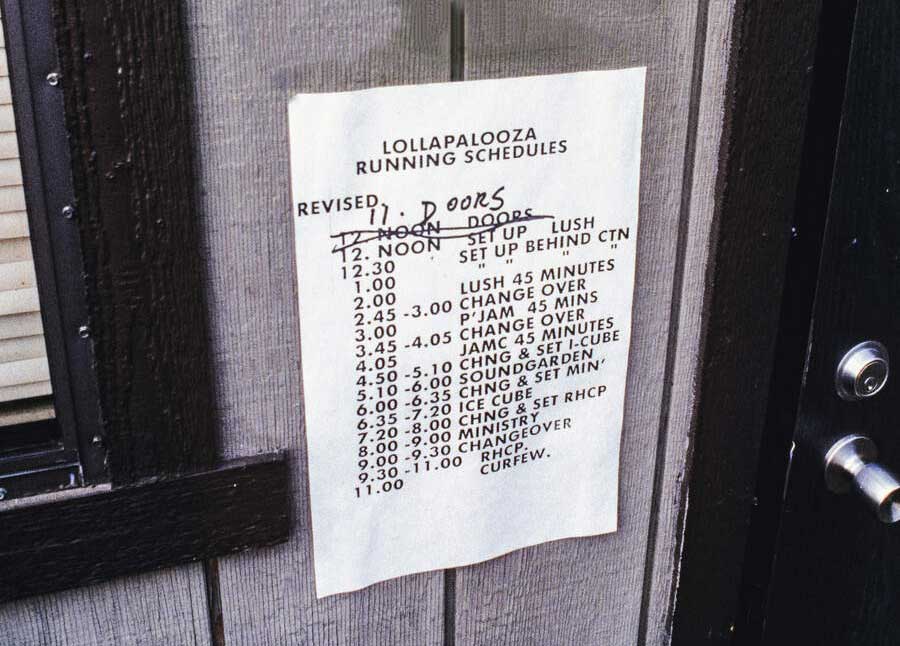 LOLLAPALOOZA
RUNNING SCHEDULES
REVISED 11. DOORS
12 NOON DOORS
12. NOON SET UP LUSH
12.30 SET UP BEHIND CTN
1.00 " " " "
2.00 LUSH 45 MINUTES
2.45 -3.00 CHANGE OVER
3.00 P'JAM 45 MINS
3.45 -4.05 CHANGE OVER
4.05 JAMC 45 MINUTES
4.50 -5.10 CHNG & SET I-CUBE
5.10 -6.00 SOUNDGARDEN
6.00 -6.35 CHNG & SET MIN'
6.35 -7.20 ICE CUBE
7.20 -8.00 CHNG & SET RHCP
8.00 -9.00 MINISTRY
9.00 -9.30 CHANGEOVER
9.30 -11.00 RHCP.
11.00 CURFEW.